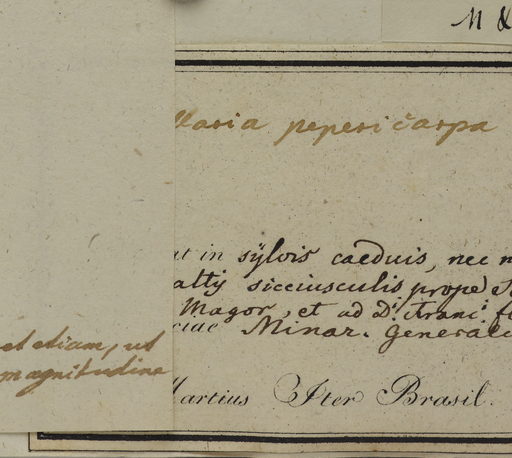 M &
laria peperičarpa
at in sÿlvis caeduis, nec
sicciusculis prope
Magor, et ad D.i Franc.i
ciae Minar. Generali
et etiam, ut
magnitudine
Martius Iter Brasil.